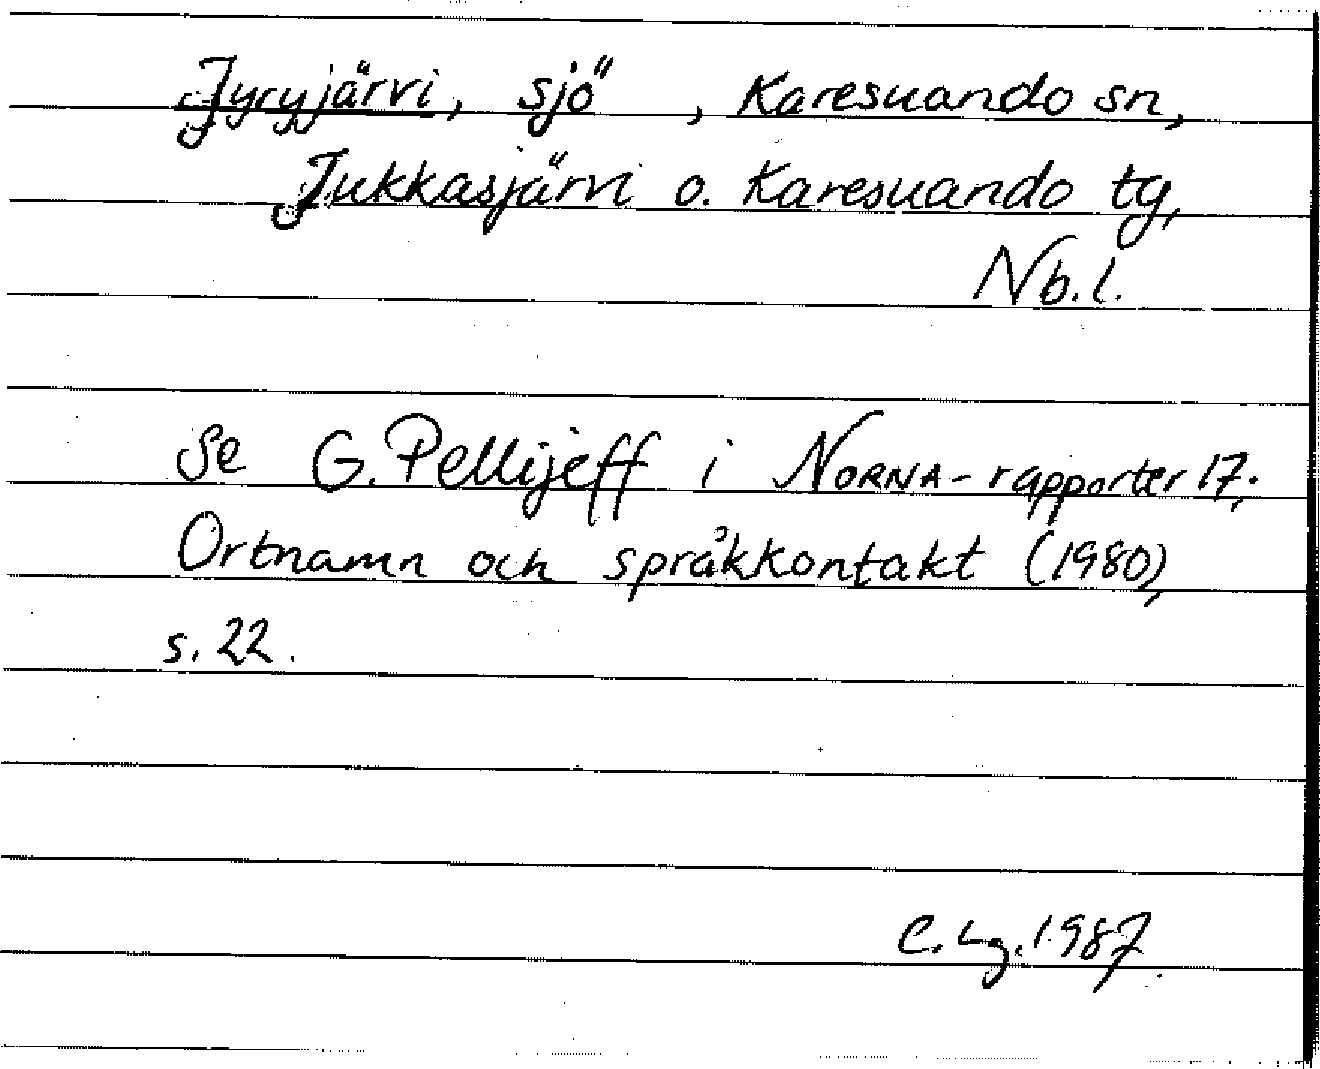 Jyryjärvi, sjö, Karesuando sn,
Jukkasjärvi o. Karesuando tg,
Nb.l.
Se G. Pellijeff i NORNA-rapporter 17;
Ortnamn och språkkontakt (1980),
s. 22.
C. Lg. 1987